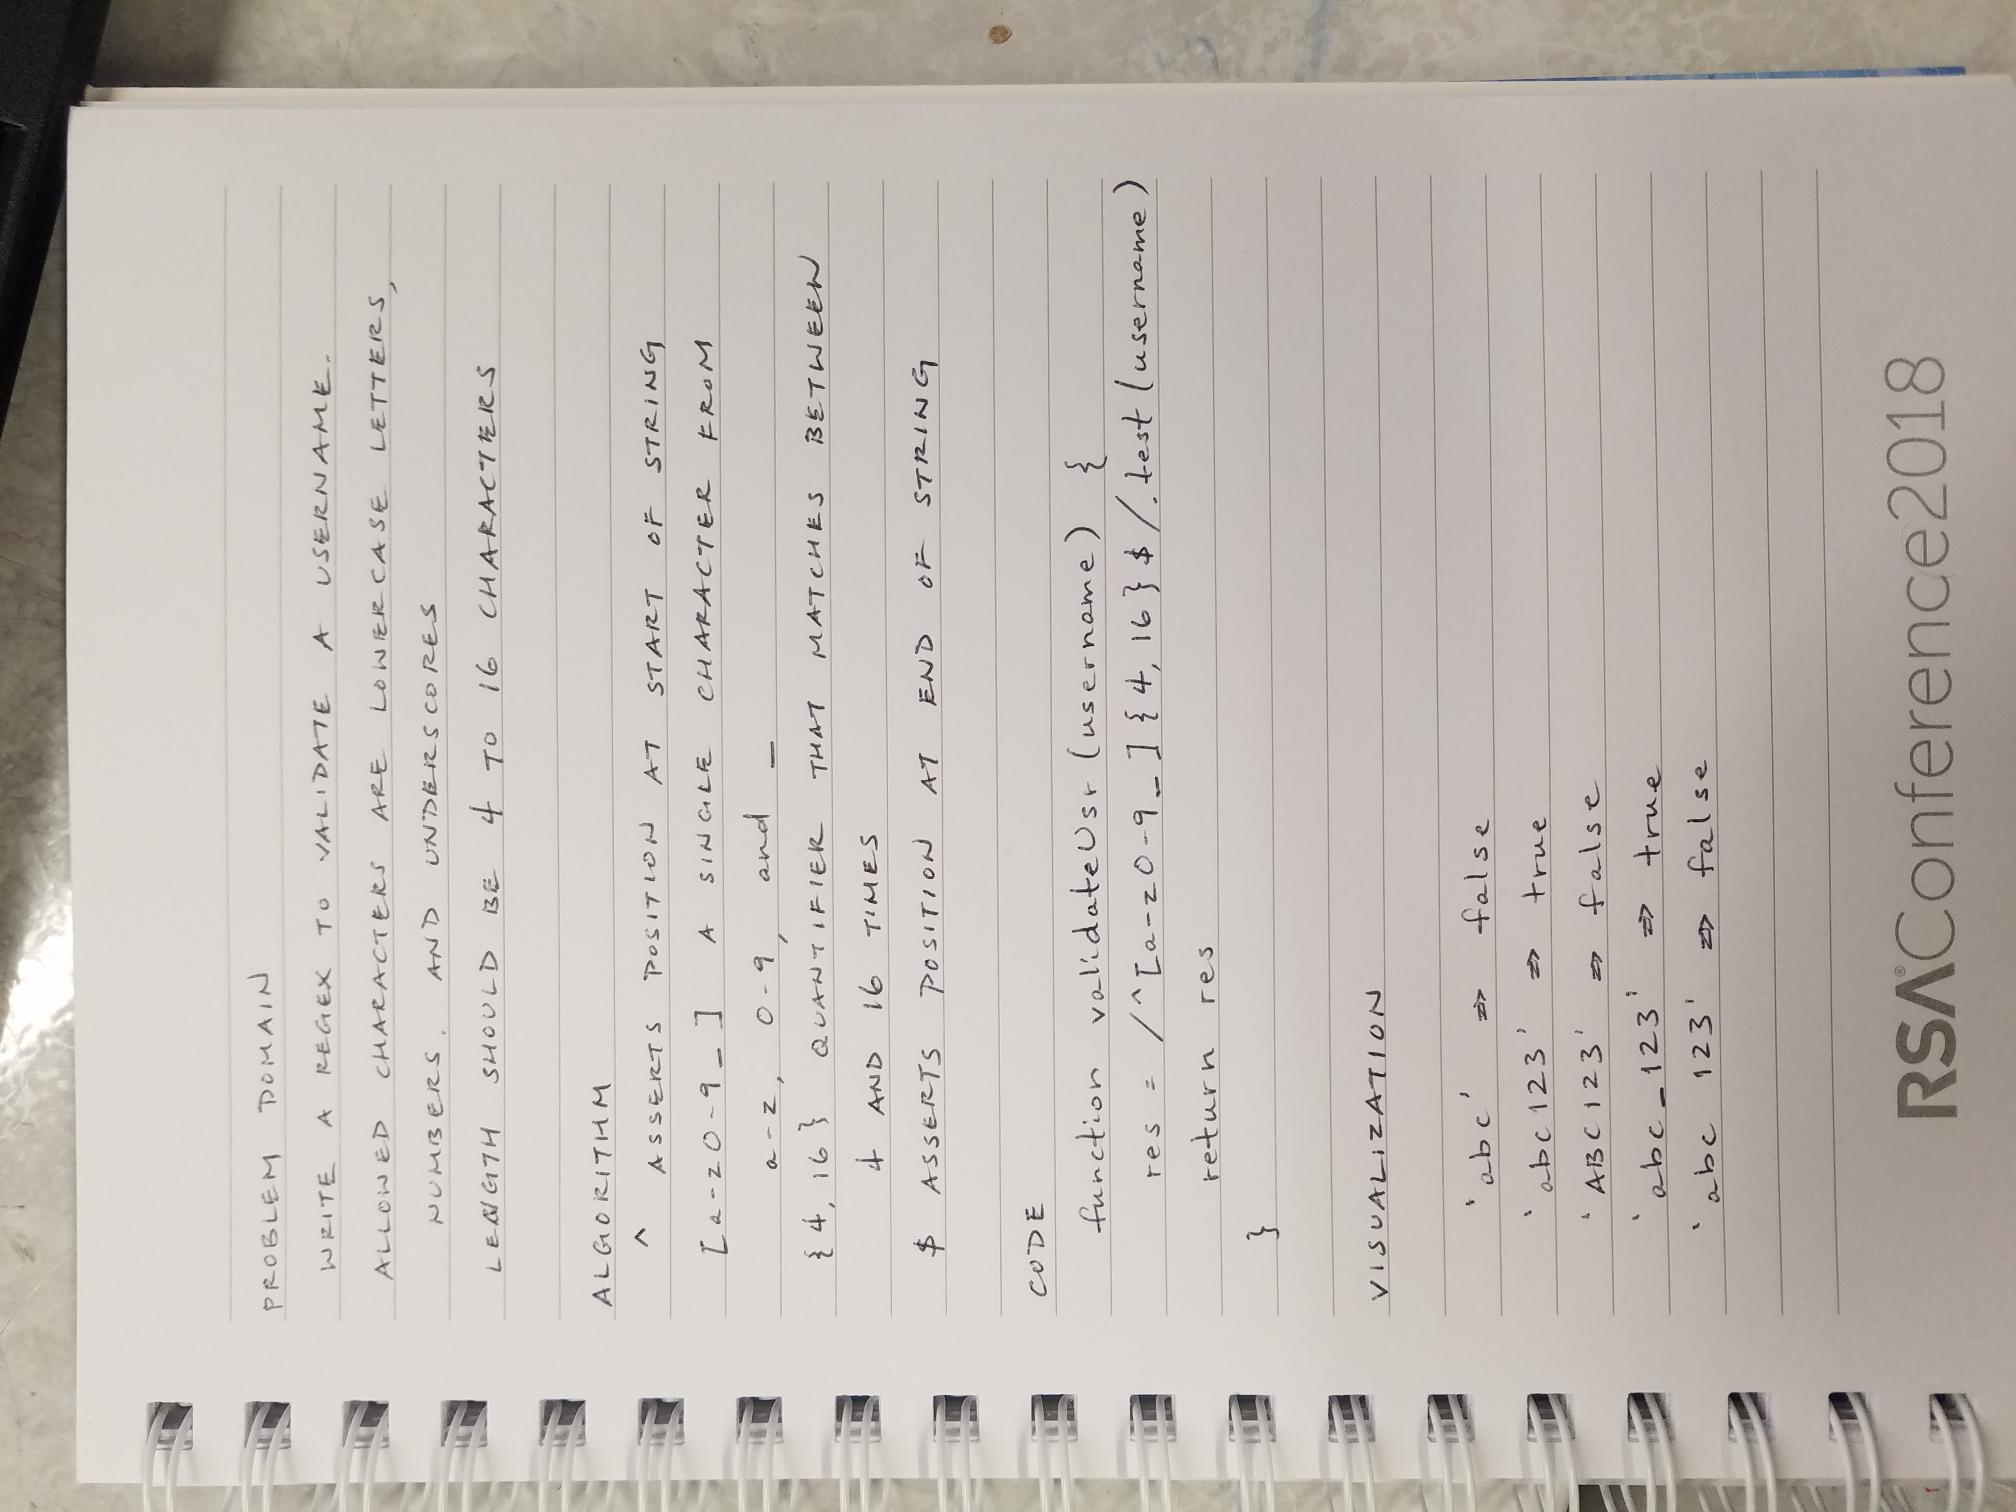 PROBLEM DOMAIN
WRITE A REGEX TO VALIDATE A USERNAME.
ALLOWED CHARACTERS ARE LOWERCASE LETTERS,
NUMBERS, AND UNDERSCORES
LENGTH SHOULD BE 4 TO 16 CHARACTERS
ALGORITHM
^ ASSERTS POSITION AT START OF STRING
[a-z0-9_] A SINGLE CHARACTER FROM
a-z, 0-9, and _
{4, 16} QUANTIFIER THAT MATCHES BETWEEN
4 AND 16 TIMES
$ ASSERTS POSITION AT END OF STRING
CODE
function validateUsr (username) {
res = /^[a-z0-9_]{4, 16}$/.test(username)
return res
}
VISUALIZATION
'abc' => false
'abc123' => true
'ABC123' => false
'abc_123' => true
'abc 123' => false
RSA®Conference2018